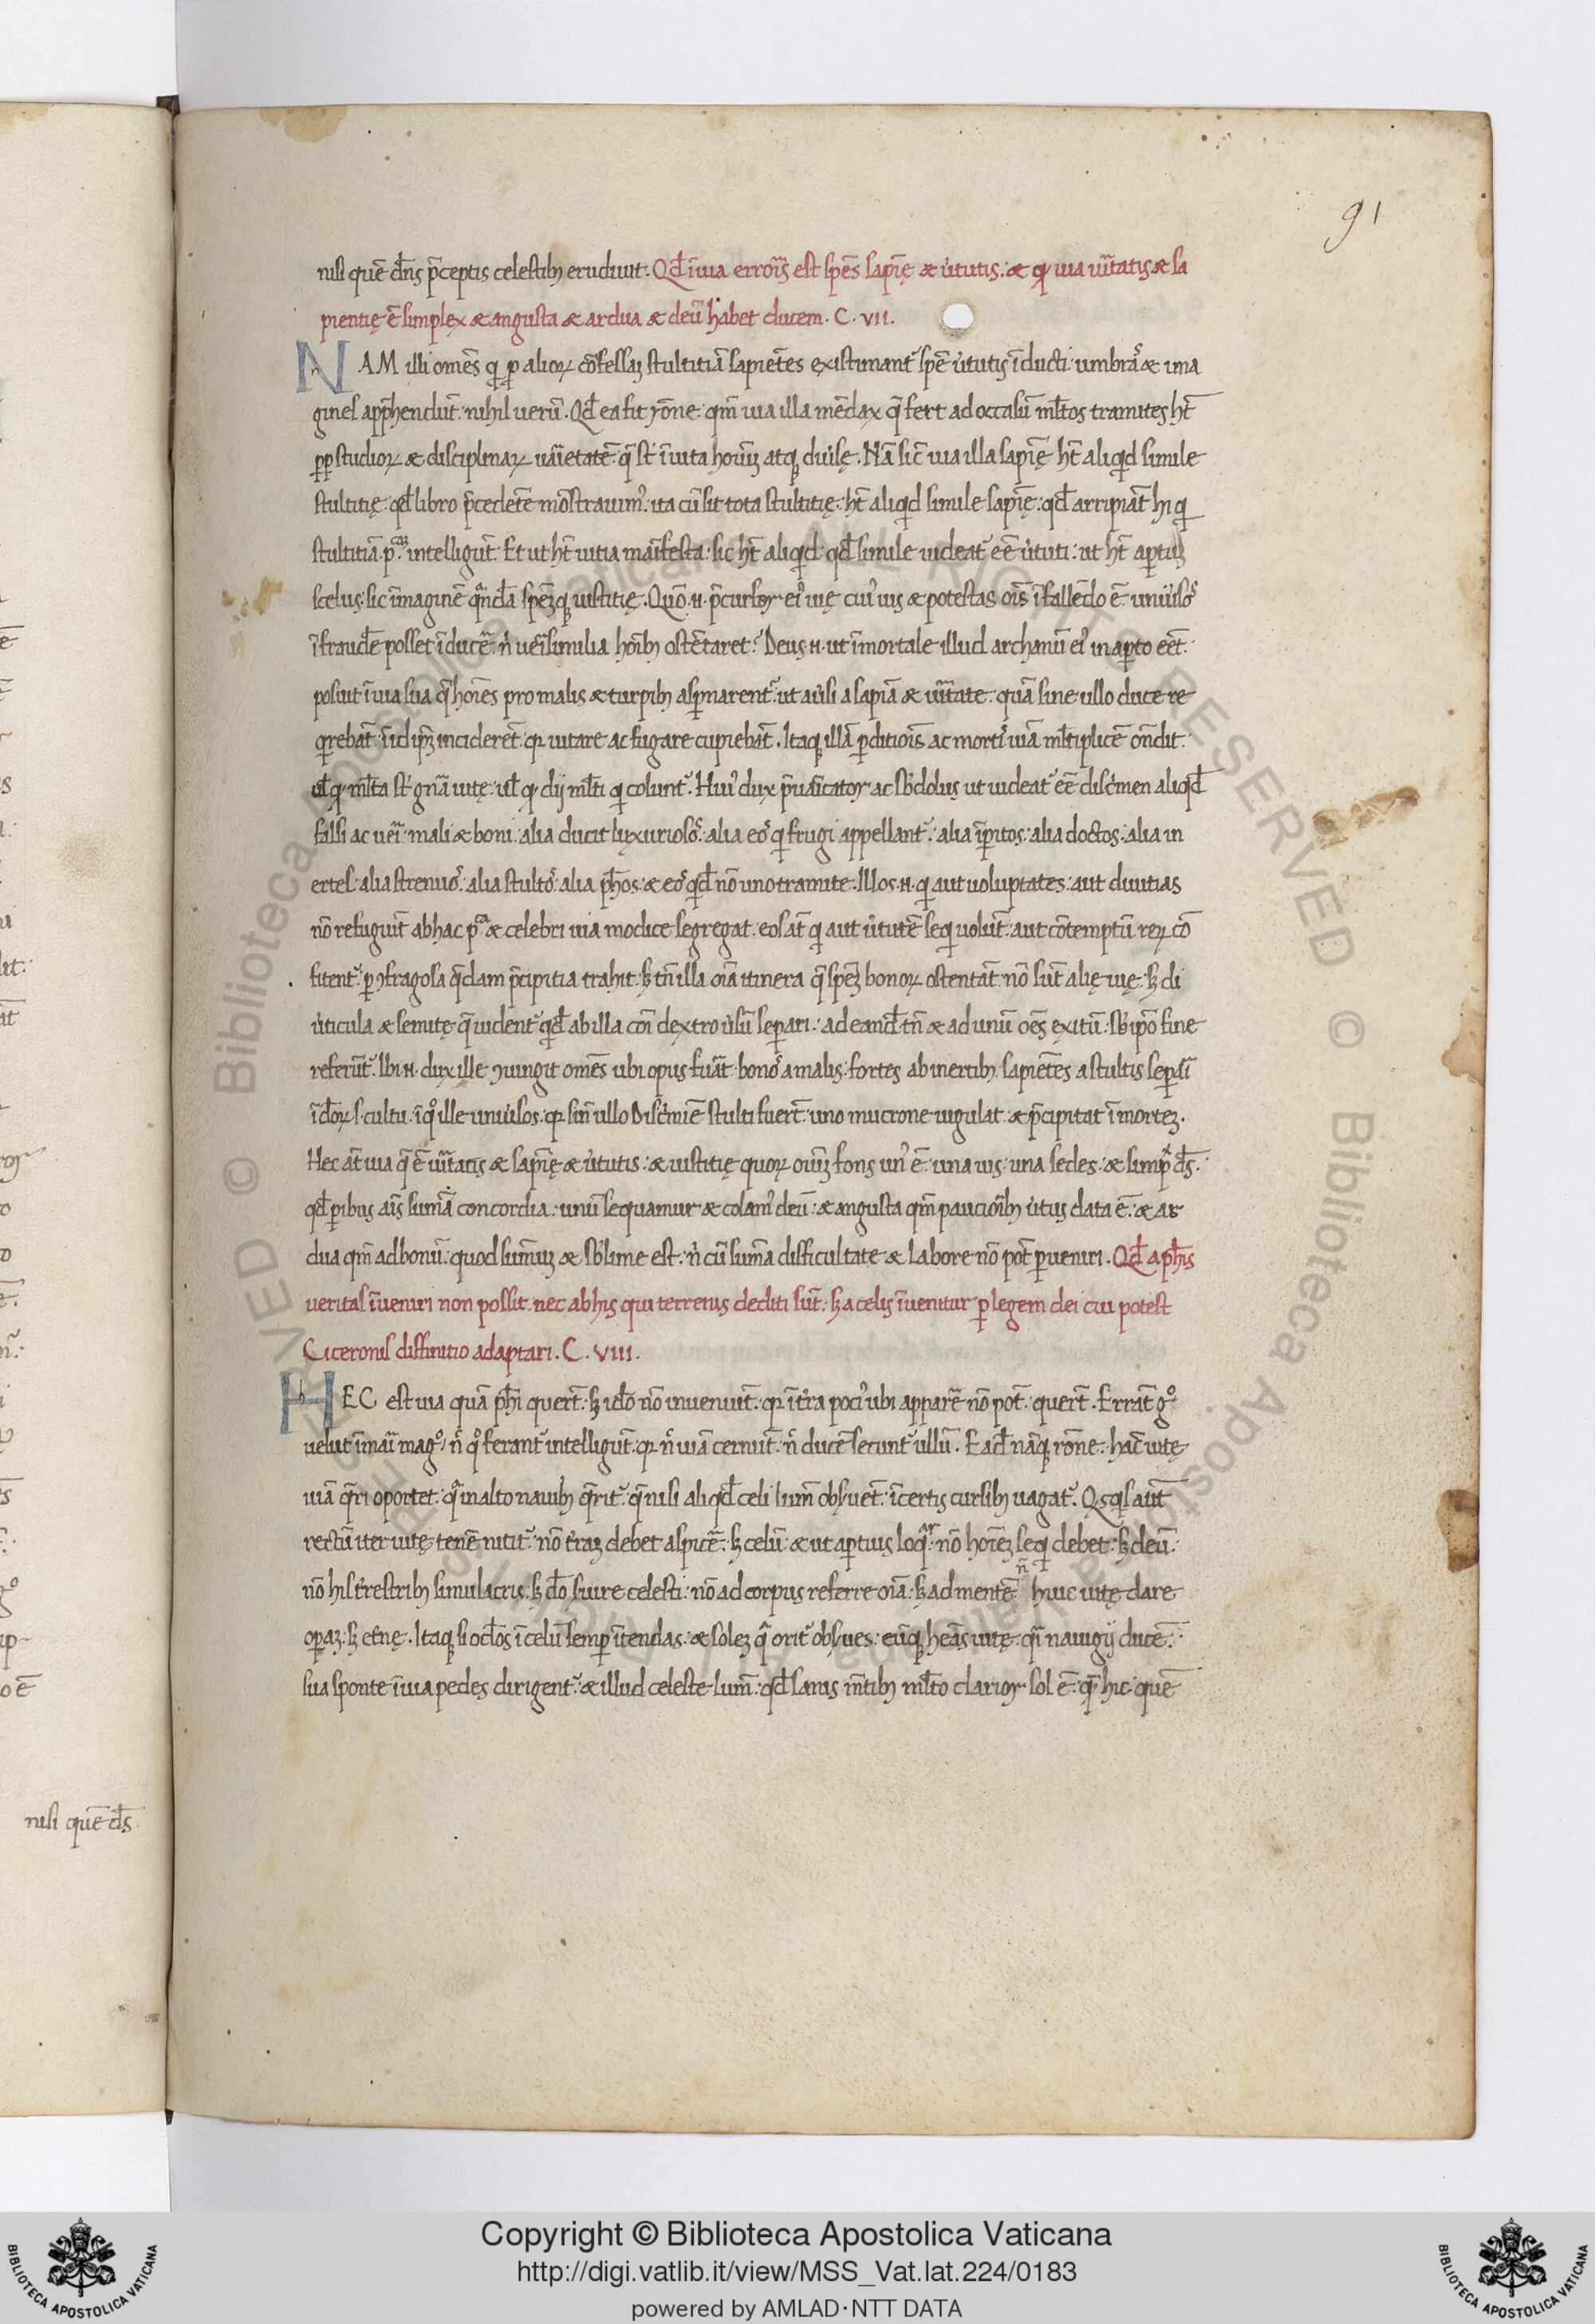 91
nisi quē dn̄s p̄ceptis celestib; erudiuit. Qđ ī uia erroris est spēs sapīę & ŭtutis: & qđ uia ūitatis & sa
pientię ē simplex & angusta & ardua & deū habet ducem. C. VII.
NAM illi omēs q p alioꝝ cōfessaꝫ stultitiā sapiētes existimant᷑ spē ŭtutis īducti: umbrā & ima
gines app̄hendūt. nihil uerū. Qđ ea fit rōne. qm̄ uia illa mēdax q̄ fert ad occasū ml̄tos tramites ht̄
pp studioꝝ & disciplinaꝝ uarietatē. q̄ st̄ ī uita hoīuꝫ atq; diu̾sę. Nā sic̄ uia illa sapīę ht̄ aliqid simile
stultitię. qđ libro p̄cedēte mōstrauim᷒. ita cū sit tota stultitię: ht̄ aliqid simile sapīę: qđ arripiāt hi q
stultitiā intelligūt. Et ut ht̄ uitia maīfesta: sic ht̄ aliqid. qđ simile uideat᷑ eē ŭtuti: ut ht̄ aptuꝫ
scelus: sic imaginē qndā spēꝫq; iustitię. Quō .n. p̄cursor ei᷒ uię cui᷒ uis & potestas oīs ī fallēdo ē. uniu̾sos
ī fraudē posset īducē. ń ueīsimilia hoīb; ostētaret? Deus .n. ut īmortale illud archanū ei᷒ in apto eēt:
posuit ī uia sua q̄ hoīes pro malis & turpib; aspnarent᷑: ut au̾si a sapīa & ūitate. quā sine ullo duce re
qrebāt: īid ipꝫ inciderēt. qđ uitare ac fugare cupiebāt. Itaq; illā pditiois ac mortis uiā ml̄tiplicē on̄dit:
ul̄ q ml̄ta st̄ gn̄a uitę. ul̄ q dij ml̄ti q colunt᷑. Hui᷒ dux p̄uaricator ac sb̄dolus ut uideat᷑ eē discmen aliqđ
falsi ac uēi mali & boni. alia ducit luxuriosos: alia eos q frugi appellant᷑: alia īpitos: alia doctos: alia in
ertes: alia strenuos: alia stultos: alia ph̄os: & eos qđ nō uno tramite. Illos .n. q aut uoluptates: aut diuitias
nō refugiūt ab hac & celebri uia modice segregat. eos āt q aut ŭtutē seq uolūt: aut cōtemptū reꝝ cō
fitent᷑: p ꝯfragosa q̄dam p̄cipitia trahit. sꝫ tn̄ illa oīa itinera q̄ spēꝫ bonoꝝ ostentāt: nō sūt alię uię: sꝫ di
ŭticula & semitę: q̄ uident᷑ qđ ab illa coi dextro u̾sū separi: ad eandē tn̄ & ad unū oēs exitū: sb̄ ip̄o fine
referūt᷑. Ibi .n. dux ille ꝯiungit omēs ubi opus fuāt. bonos a malis: fortes ab inertib;. sapiētes a stultis separi
īdoꝝ .s. cultu. īqo ille uniu̾sos. qđ sin̄ ullo discimiē stulti fuert̄: uno mucrone iugulat. & p̄cipitat ī morteꝫ.
Hec āt uia q̄ ē ūitatis & sapīę & ŭtutis: & iustitię quoꝝ oīuꝫ fons un᷒ ē. una uis: una sedes: & simp̄ ds̄.
qđ paribus ais sumā concordia: unū sequamur & colam᷒ deū: & angusta qm̄ paucioib; u̾tus data ē. & ar
dua qm̄ ad bonū. quod sumuꝫ & sb̄lime est: ń cū suma difficultate & labore nō pot̄ pueniri. Qđ a ph̄is
ueritas īueniri non possit. nec ab his qui terrenis dediti sūt: sꝫ a celis īuenitur p legem dei cui potest
Ciceronis diffinitio adaptari. C. VIII.
HEC est uia quā ph̄i querūt: sꝫ idō nō inueniūt. qđ ī tra poci᷒ ubi apparē nō pot̄: querūt. Errāt go
uelut ī mari mago: n̄ qo ferant᷑ intelligūt. qđ n̄ uiā cernūt. n̄ ducē secunt᷑ ullū. Eadē nāq; rōne. hāc uitę
uiā q̄ri oportet: qa in alto nauib; q̄rit᷑. q̄ nisi aliqđ celi lum̄ obsuēt: īcertis cursib; uagāt᷑. Qsqis aūt
rectū iter uitę tenē nitit᷑: nō traꝫ debet aspicē. sꝫ celū: & ut aptius loqr: nō hoīeꝫ seq debet: sꝫ deū:
nō his trestrib; simulacris: sꝫ dō suire celesti: nō ad corpus referre oīa: sꝫ ad mentē n̄ huic uitę dare
opaꝫ: sꝫ etnę. Itaq; si oc̄los ī celū semp ītendas: & soleꝫ qa orit᷑ obsues: eūq; heās uitę qi nauigij ducē:
sua sponte ī uia pedes dirigent᷑: & illud celeste lum̄. qđ sanis m̄tib; ml̄to clarior sol ē. q̄ hic quē
nisi quē ds̄
Copyright © Biblioteca Apostolica Vaticana
http://digi.vatlib.it/view/MSS_Vat.lat.224/0183
powered by AMLAD·NTT DATA